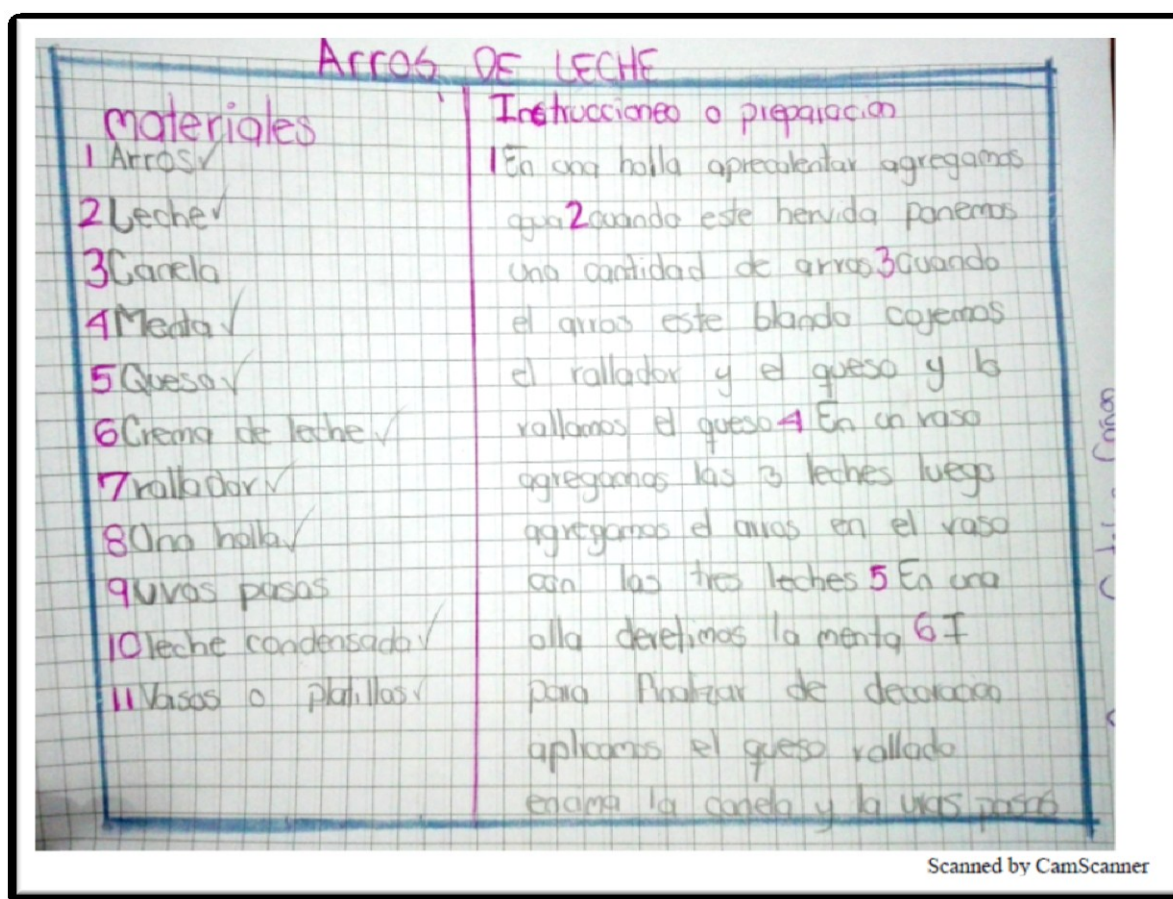 Arros DE LECHE
materiales
1 Arros✓
2 Leche✓
3 Canela
4 Menta✓
5 Queso✓
6 Crema de leche✓
7 rallador✓
8 Una holla✓
9 uvas pasas
10 leche condensada✓
11 Vasos o platillos✓
Instrucciones o preparación
1 En una holla aprecalentar agregamos
agua 2 cuando este hervida ponemos
una cantidad de arros 3 Cuando
el arros este blando cojemos
el rallador y el queso y lo
rallamos el queso 4 En un vaso
agregamos las 3 leches luego
agregamos el arros en el vaso
con las tres leches 5 En una
olla deretimos la menta 6 I
para Finalizar de decoracion
aplicamos el queso rallado
encima la canela y la uvas pasas
Scanned by CamScanner